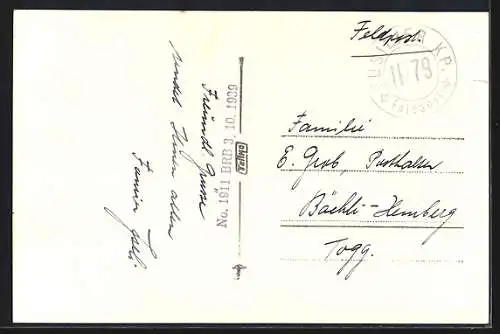 Feldpost.
KP.
II/79
Feldpost
Familie
E. Grob, Posthalter
Bächli-Hemberg
Togg.
No. 1911 BRB 3. 10. 1939
Freundl. Grüsse
sendet Ihnen allen